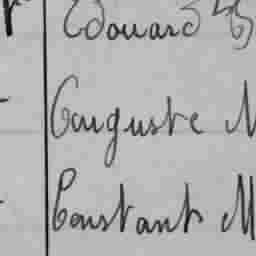 Edouard
Auguste M
Constant M